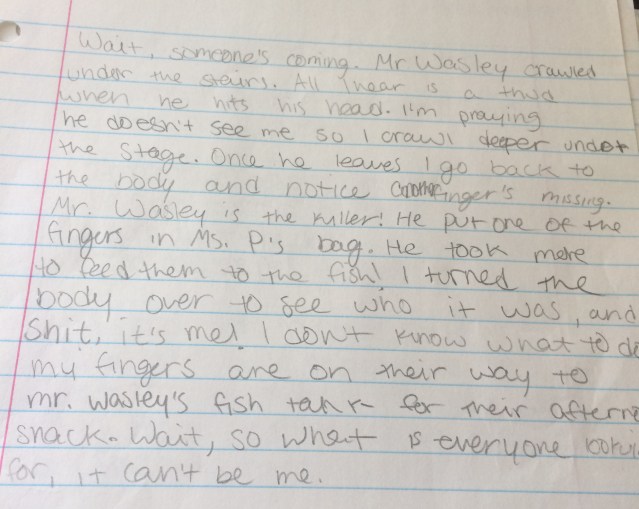 Wait, someone's coming. Mr Wasley crawled
under the stairs. All I hear is a thud
when he hits his head. I'm praying
he doesn't see me so I crawl deeper under
the stage. Once he leaves I go back to
the body and notice another finger's missing.
Mr. Wasley is the killer! He put one of the
fingers in Ms. P's bag. He took more
to feed them to the fish! I turned the
body over to see who it was, and
shit, it's me! I don't know what to do
my fingers are on their way to
mr. wasley's fish tank for their
snack. Wait, so what is everyone
for, it can't be me.